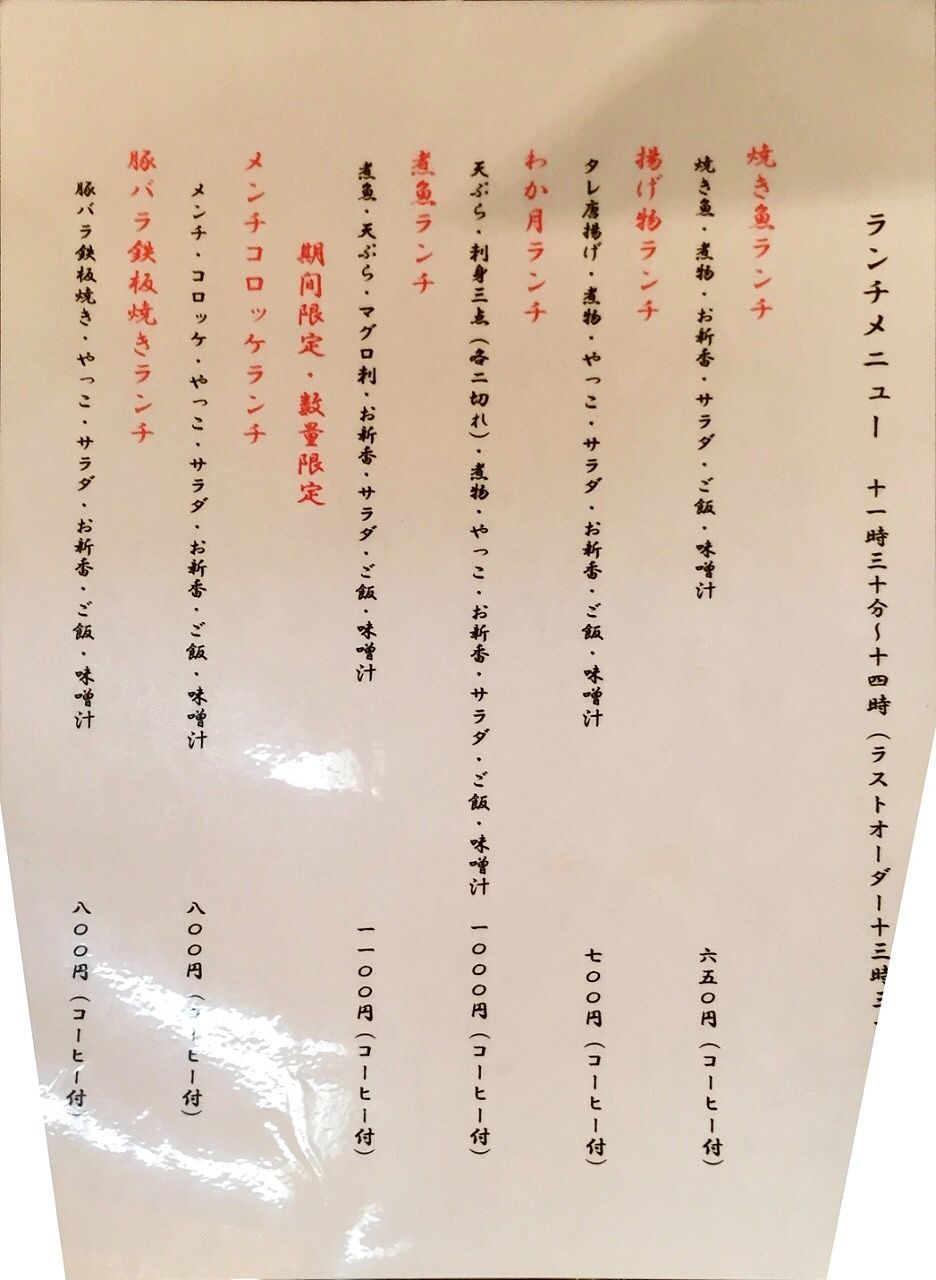 ランチメニュー 十一時三十分～十四時（ラストオーダー十三時三
焼き魚ランチ
焼き魚・煮物・お新香・サラダ・ご飯・味噌汁 六五〇円（コーヒー付）
揚げ物ランチ
タレ唐揚げ・煮物・やっこ・サラダ・お新香・ご飯・味噌汁 七〇〇円（コーヒー付）
わか月ランチ
天ぷら・刺身三点（各二切れ）・煮物・やっこ・お新香・サラダ・ご飯・味噌汁 一〇〇〇円（コーヒー付）
煮魚ランチ
煮魚・天ぷら・マグロ刺・お新香・サラダ・ご飯・味噌汁 一一〇〇円（コーヒー付）
期間限定・数量限定
メンチコロッケランチ
メンチ・コロッケ・やっこ・サラダ・お新香・ご飯・味噌汁 八〇〇円（コーヒー付）
豚バラ鉄板焼きランチ
豚バラ鉄板焼き・やっこ・サラダ・お新香・ご飯・味噌汁 八〇〇円（コーヒー付）